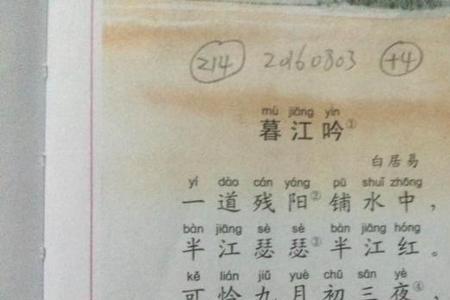 214 20160803 +4
mù jiāng yín
暮江吟①
白居易
yí dào cán yáng pū shuǐ zhōng
一道残阳②铺水中，
bàn jiāng sè sè bàn jiāng hóng
半江瑟瑟③半江红。
kě lián jiǔ yuè chū sān yè
可怜九月初三夜④，